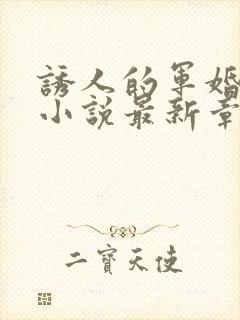 誘人的軍婚
小説最新章
二寶天使